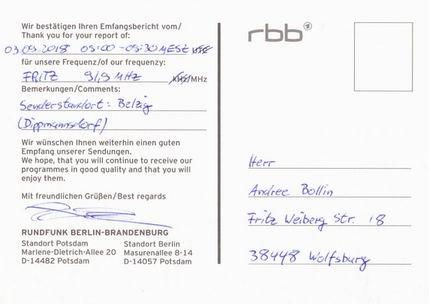 Wir bestätigen Ihren Empfangsbericht vom/
Thank you for your report of:
03.09.2018 05:00 - 05:30 MESZ
für unsere Frequenz/of our frequency:
FRITZ 91,9 MHz kHz/MHz
Bemerkungen/Comments:
Senderstandort: Belzig
(Dippmannsdorf)
Wir wünschen Ihnen weiterhin einen guten
Empfang unserer Sendungen.
We hope, that you will continue to receive our
programmes in good quality and that you will
enjoy them.
Mit freundlichen Grüßen/Best regards
RUNDFUNK BERLIN-BRANDENBURG
Standort Potsdam
Marlene-Dietrich-Allee 20
D-14482 Potsdam
Standort Berlin
Masurenallee 8-14
D-14057 Potsdam
rbb
Herr
Andree Bollin
Fritz Weiberg Str. 18
38448 Wolfsburg